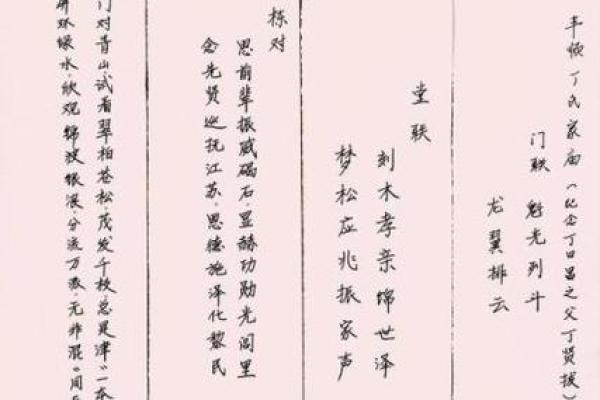 丰顺丁氏家庙（纪念丁日昌之父丁贤拔）
门联 魁光列斗
龙翼排云
堂联
刻木孝亲绵世泽
梦松应兆振家声
栋对
思前辈振威碣石·显赫功勋光闾里
念先贤巡抚江苏·恩德施泽化黎民
门对青山·试看翠柏苍松·茂发千枝·总是津"一本
屏环绿水·欣观锦波银浪·分流万派·无非混"同